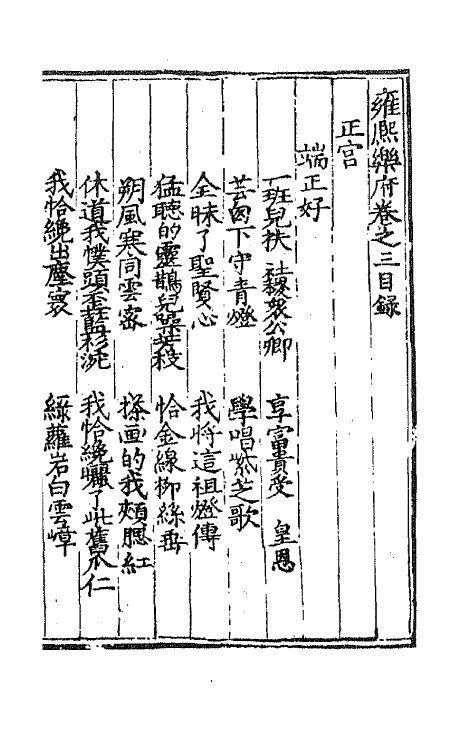 雍熈樂府卷之三目録
正宫
端正好
一班兒扶社稷衆公卿 享富貴受 皇恩
芸窓下守青燈 學唱紫芝歌
全昧了聖賢心 我將這祖燈傳
猛聴的靈鵲兒噪芳枝 恰金線柳絲垂
朔風寒同雲密 搽画的我頰腮紅
休道我幞頭歪藍衫泥 我恰纔曬了此舊
我恰纔出塵寰 緑蘿岩白雲嶂